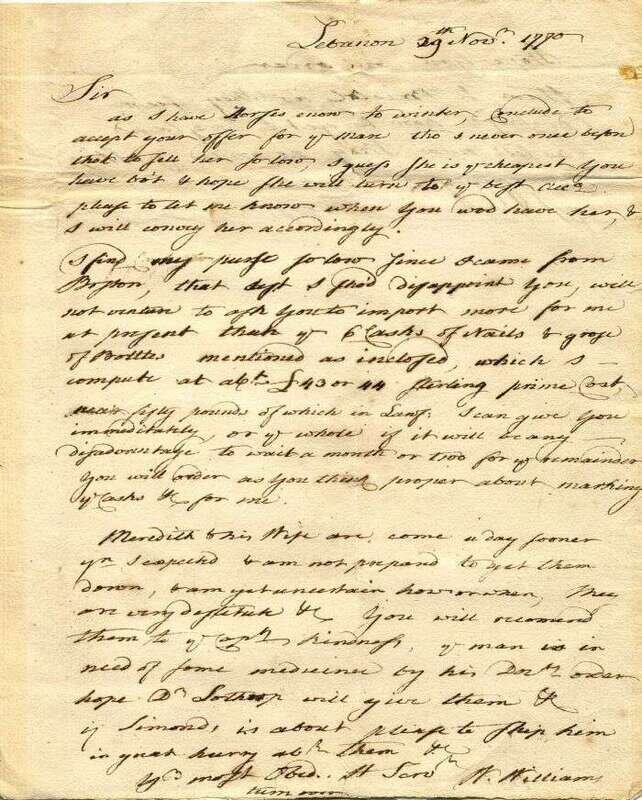 Lebanon 29th Novr. 1770
Sir
as I have Horses enow to winter, Conclude to
accept your offer for ye Mare tho I never once before
that to sell her so low, I guess she is ye cheapest You
have bot & hope she will turn to ye best Acco.
please to let me know when You wod have her, &
I will convey her accordingly.
I find my purse so low since I came from
Boston, that lest I shod disappoint You, will
not venture to ask You to import more for me
at present than ye 6 Casks of Nails & groze
of Bottles mentioned as inclosed, which I
compute at abt. £43 or 44 sterling prime Cost,
near fifty pounds of which in Lawf. I can give You
immeditately, or ye whole if it will be any
disadvantage to wait a month or two for ye remainder
You will order as You think proper about marking
ye Casks &c for me.
Meredith & his Wife are come a day sooner
yn I expected & am not prepared to get them
down, & am yet uncertain how or when, They
are very destitute &c You will recomend
them to ye Capts. kindness, ye man is in
need of some medicines by his Doctrs. order
hope Dr. Lothrop will give them &c
if Simonds is about please to ship him
in great hurry abt. them &c
Yr. most Obed. St Servt. W. Williams
turn over